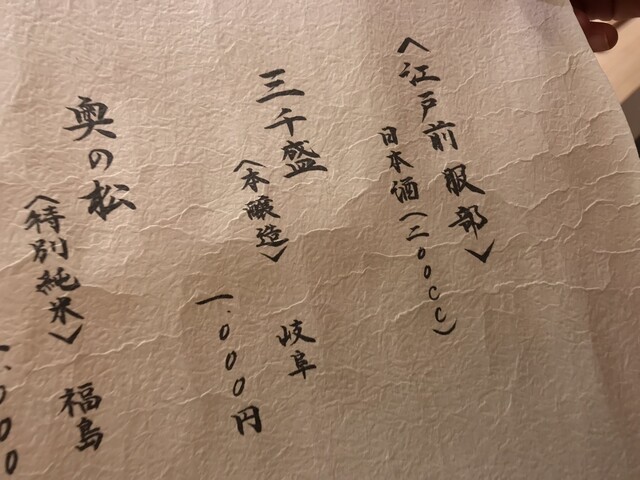 〈江戸前 服部〉
日本酒(二〇〇cc)
三千盛
〈本醸造〉
岐阜
一.〇〇〇円
奥の松
〈特別純米〉
福島
一.〇〇〇